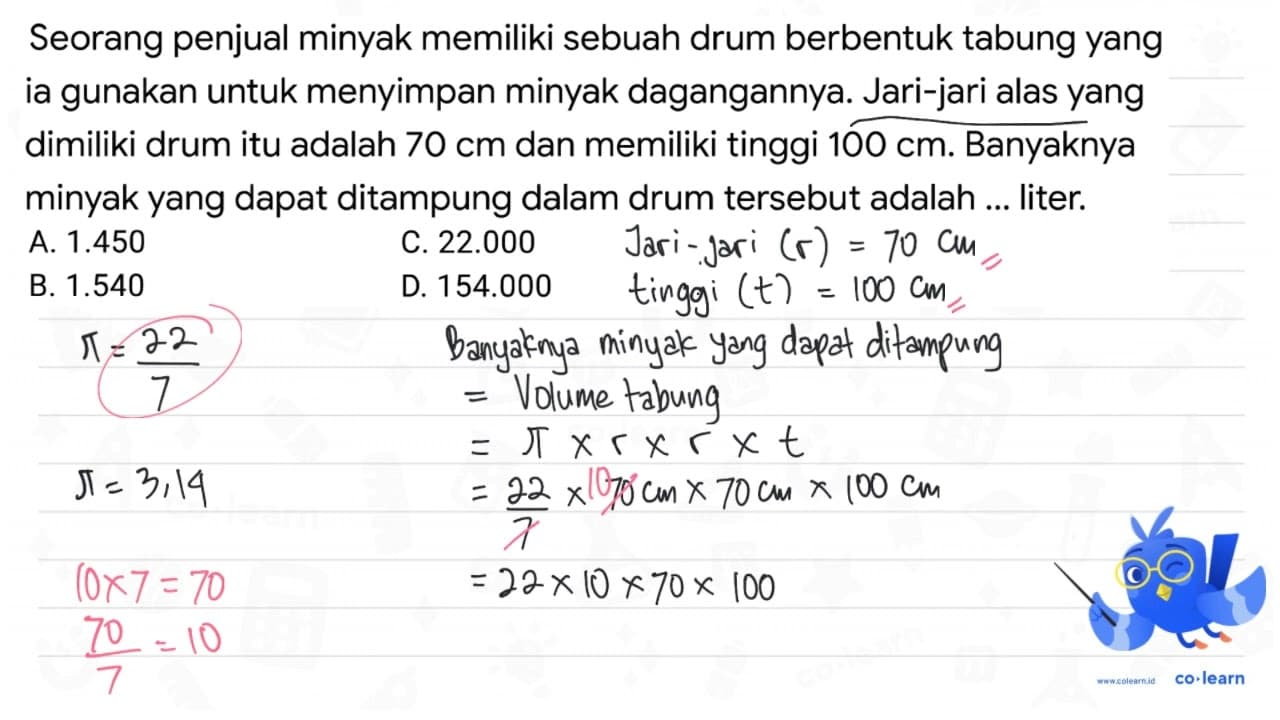 Seorang penjual minyak memiliki sebuah drum berbentuk tabung yang
ia gunakan untuk menyimpan minyak dagangannya. Jari-jari alas yang
dimiliki drum itu adalah 70 cm dan memiliki tinggi 100 cm. Banyaknya
minyak yang dapat ditampung dalam drum tersebut adalah ... liter.
A. 1.450
C. 22.000
B. 1.540
D. 154.000
Jari-jari (r) = 70 cm
tinggi (t) = 100 cm
π = 22
7
π = 3,14
10 x 7 = 70
70 = 10
7
Banyaknya minyak yang dapat ditampung
= Volume tabung
= π x r x r x t
= 22 x 10 70 cm x 70 cm x 100 cm
7
= 22 x 10 x 70 x 100
www.colearn.id
co·learn